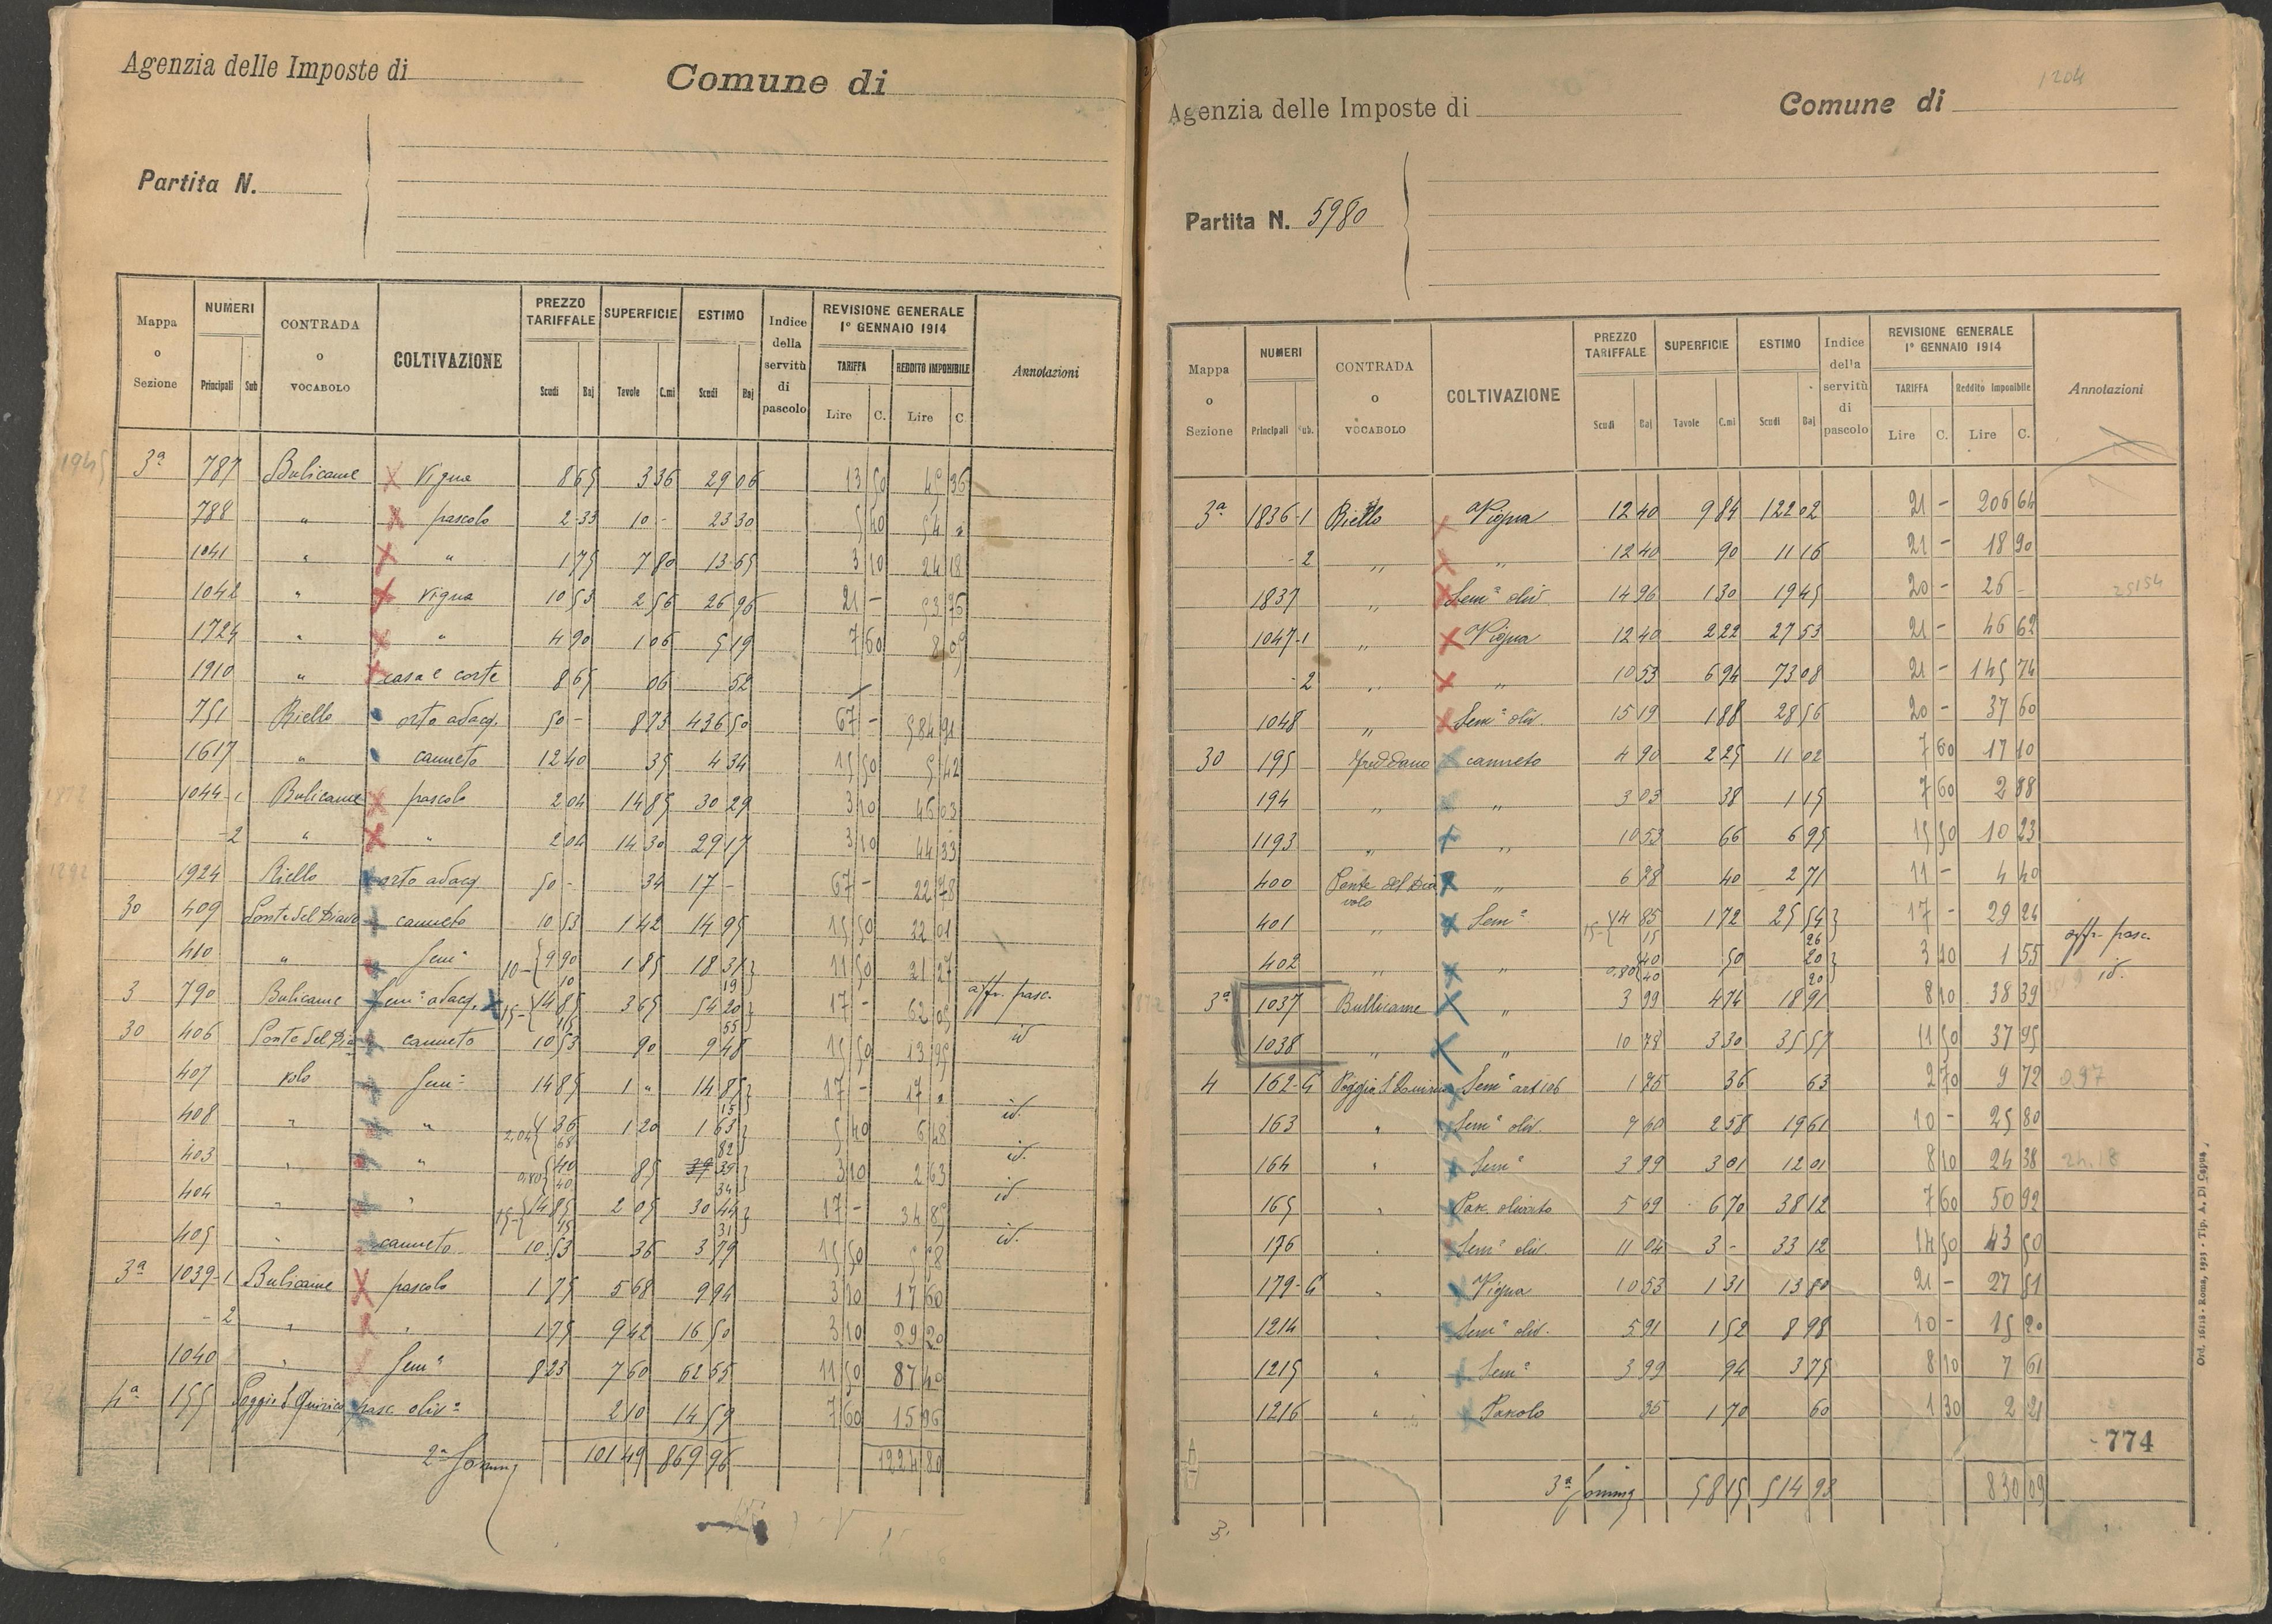 Agenzia delle Imposte di
Comune di
Partita N.
Mappa o Sezione | NUMERI Principali Sub | CONTRADA o VOCABOLO | COLTIVAZIONE | PREZZO TARIFFALE Scudi Baj | SUPERFICIE Tavole C.mi | ESTIMO Scudi Baj | Indice della servitù di pascolo | REVISIONE GENERALE 1° GENNAIO 1914 TARIFFA Lire C. REDDITO IMPONIBILE Lire C | Annotazioni
3ª 787 Bulicame Vigna 8 65 3 36 29 06 13 50 45 36
788 " pascolo 2 33 10 - 23 30 5 40 54 "
1041 " " 1 75 7 80 13 65 3 10 24 18
1042 " Vigna 10 53 2 56 26 96 21 - 53 76
1724 " " 4 90 1 06 5 19 7 60 8 05
1910 " casa e corte 8 65 06 52
751 Riello orto adacq. 50 - 8 73 436 50 67 - 584 91
1617 " canneto 12 40 35 4 34 15 50 5 42
1044 1 Bulicame pascolo 2 04 14 85 30 29 3 10 46 03
- 2 " " 2 04 14 30 29 17 3 10 44 33
1924 Riello orto adacq 50 - 34 17 - 67 - 22 78
30 409 Ponte del Diavo canneto 10 53 1 42 14 95 15 50 22 01
410 " Sem° 10 - { 9 90 10 1 85 18 31 } 19 11 50 21 27
3 790 Bulicame Sem° adacq. 15 - { 14 85 15 3 65 54 20 } 55 17 - 62 05 aff. pasc.
30 406 Ponte del Dia canneto 10 53 90 9 48 15 50 13 95 id
407 volo Sem° 14 85 1 " 14 85 } 15 17 - 17 "
408 " " 2,04 { 1 36 68 1 20 1 63 } 82 5 40 6 48 id.
403 " " 0,80 { 40 40 85 39 } 34 3 10 2 63 id.
404 " " 15 - { 14 85 15 2 05 30 44 } 31 17 - 34 85 id
405 " canneto 10 53 36 3 79 15 50 5 58 id.
3ª 1039-1 Bulicame pascolo 1 75 5 68 9 94 3 10 17 60
- 2 " " 1 75 9 42 16 50 3 10 29 20
1040 " Sem° 8 23 7 60 62 55 11 50 87 40
4ª 155 Poggio S Quirico pasc. oliv° 2 10 14 59 7 60 15 96
2ª Somma 101 49 869 96 1224 80
1204
Agenzia delle Imposte di
Comune di
Partita N. 5980
Mappa o Sezione | NUMERI Principali Sub. | CONTRADA o VOCABOLO | COLTIVAZIONE | PREZZO TARIFFALE Scudi Baj | SUPERFICIE Tavole C.mi | ESTIMO Scudi Baj | Indice della servitù di pascolo | REVISIONE GENERALE 1° GENNAIO 1914 TARIFFA Lire C. Reddito Imponibile Lire C. | Annotazioni
3ª 1836-1 Riello Vigna 12 40 9 84 122 02 21 - 206 64
- 2 " " 12 40 90 11 16 21 - 18 90
1837 " Sem° oliv 14 96 1 30 19 45 20 - 26 -
1047-1 " Vigna 12 40 2 22 27 53 21 - 46 62
- 2 " " 10 53 6 94 73 08 21 - 145 74
1048 " Sem° oliv. 15 19 1 88 28 56 20 - 37 60
30 195 Freddano canneto 4 90 2 25 11 02 7 60 17 10
194 " " 3 03 38 1 15 7 60 2 88
1193 " " 10 53 66 6 95 15 50 10 23
400 Ponte del Dia volo " 6 78 40 2 71 11 - 4 40
401 " Sem° 15 - { 14 85 15 1 72 25 54 } 26 17 - 29 24 aff. pasc.
402 " " 0,80 { 40 40 50 20 } 20 3 10 1 55 id.
3ª 1037 Bullicame " 3 99 4 74 18 91 8 10 38 39
1038 " " 10 78 3 30 35 57 11 50 37 95
4 162-4 Poggio S Quirico Sem° art 106 1 75 36 63 2 70 9 72 0,97
163 " Sem° oliv. 7 60 2 58 19 61 10 - 25 80
164 " Sem° 3 99 3 01 12 01 8 10 24 38 24.18
165 " Pasc. olivato 5 69 6 70 38 12 7 60 50 92
176 " Sem° oliv. 11 04 3 - 33 12 14 50 43 50
179-4 " Vigna 10 53 1 31 13 80 21 - 27 51
1214 " Sem° oliv. 5 91 1 52 8 98 10 - 15 20
1215 " Sem° 3 99 94 3 75 8 10 7 61
1216 " Pascolo 35 1 70 60 1 30 2 21
774
3ª Somma 58 15 514 93 830 09
Ord. 16118 - Roma, 1923 - Tip. A. Di Capua.